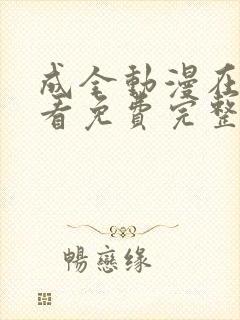 成全動漫在
看免費完整
暢戀缘